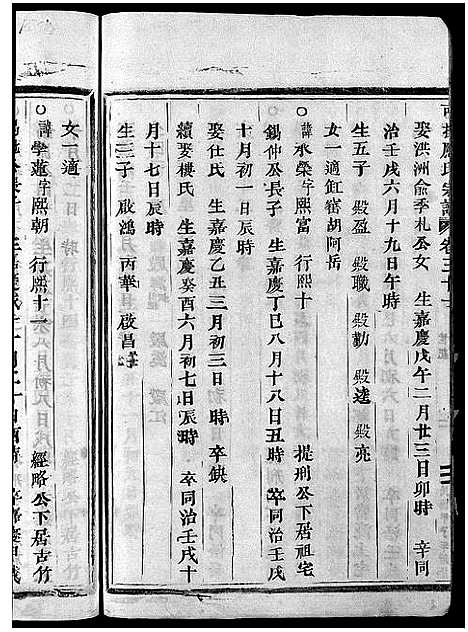 娶洪洲俞季札公女　生嘉慶戊午二月廿三日卯時　卒同
治壬戌六月十九日午時
生五子　殿盈　殿職　殿勷　殿逵　殿亮
女一適缸窰胡阿岳
○諱永榮字熙富　行熙十　提刑公下居祖宅
錫仲公長子　生嘉慶丁巳八月十八日丑時　卒同治壬戌
十月初一日辰時
娶仕氏　生嘉慶乙丑三月初三日時　卒缺
續娶樓氏　生嘉慶癸酉六月初七日辰時　卒同治壬戌十
月十七日辰時
生三子　啟鴻　丙華　啟昌
女一適
○諱學蓮字熙朝　行熙十一　經略公下居古竹